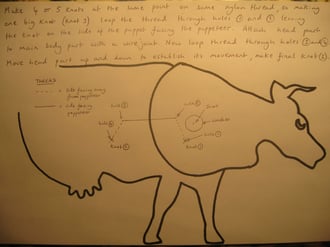 Make 4 or 5 knots at the same point on same nylon thread, so making
one big knot (knot 1) Loop the thread through holes ① and ② leaving
the knot on the side of the puppet facing the puppeteer. Attach head part
to main body part with a wire joint. Now loop thread through holes ③ and ④
Move head part up and down to establish its movement, make final knot (2).
THREAD
= side facing away
from puppeteer
= side facing
puppeteer
hole
hole
hole
knot
hole
knot ①